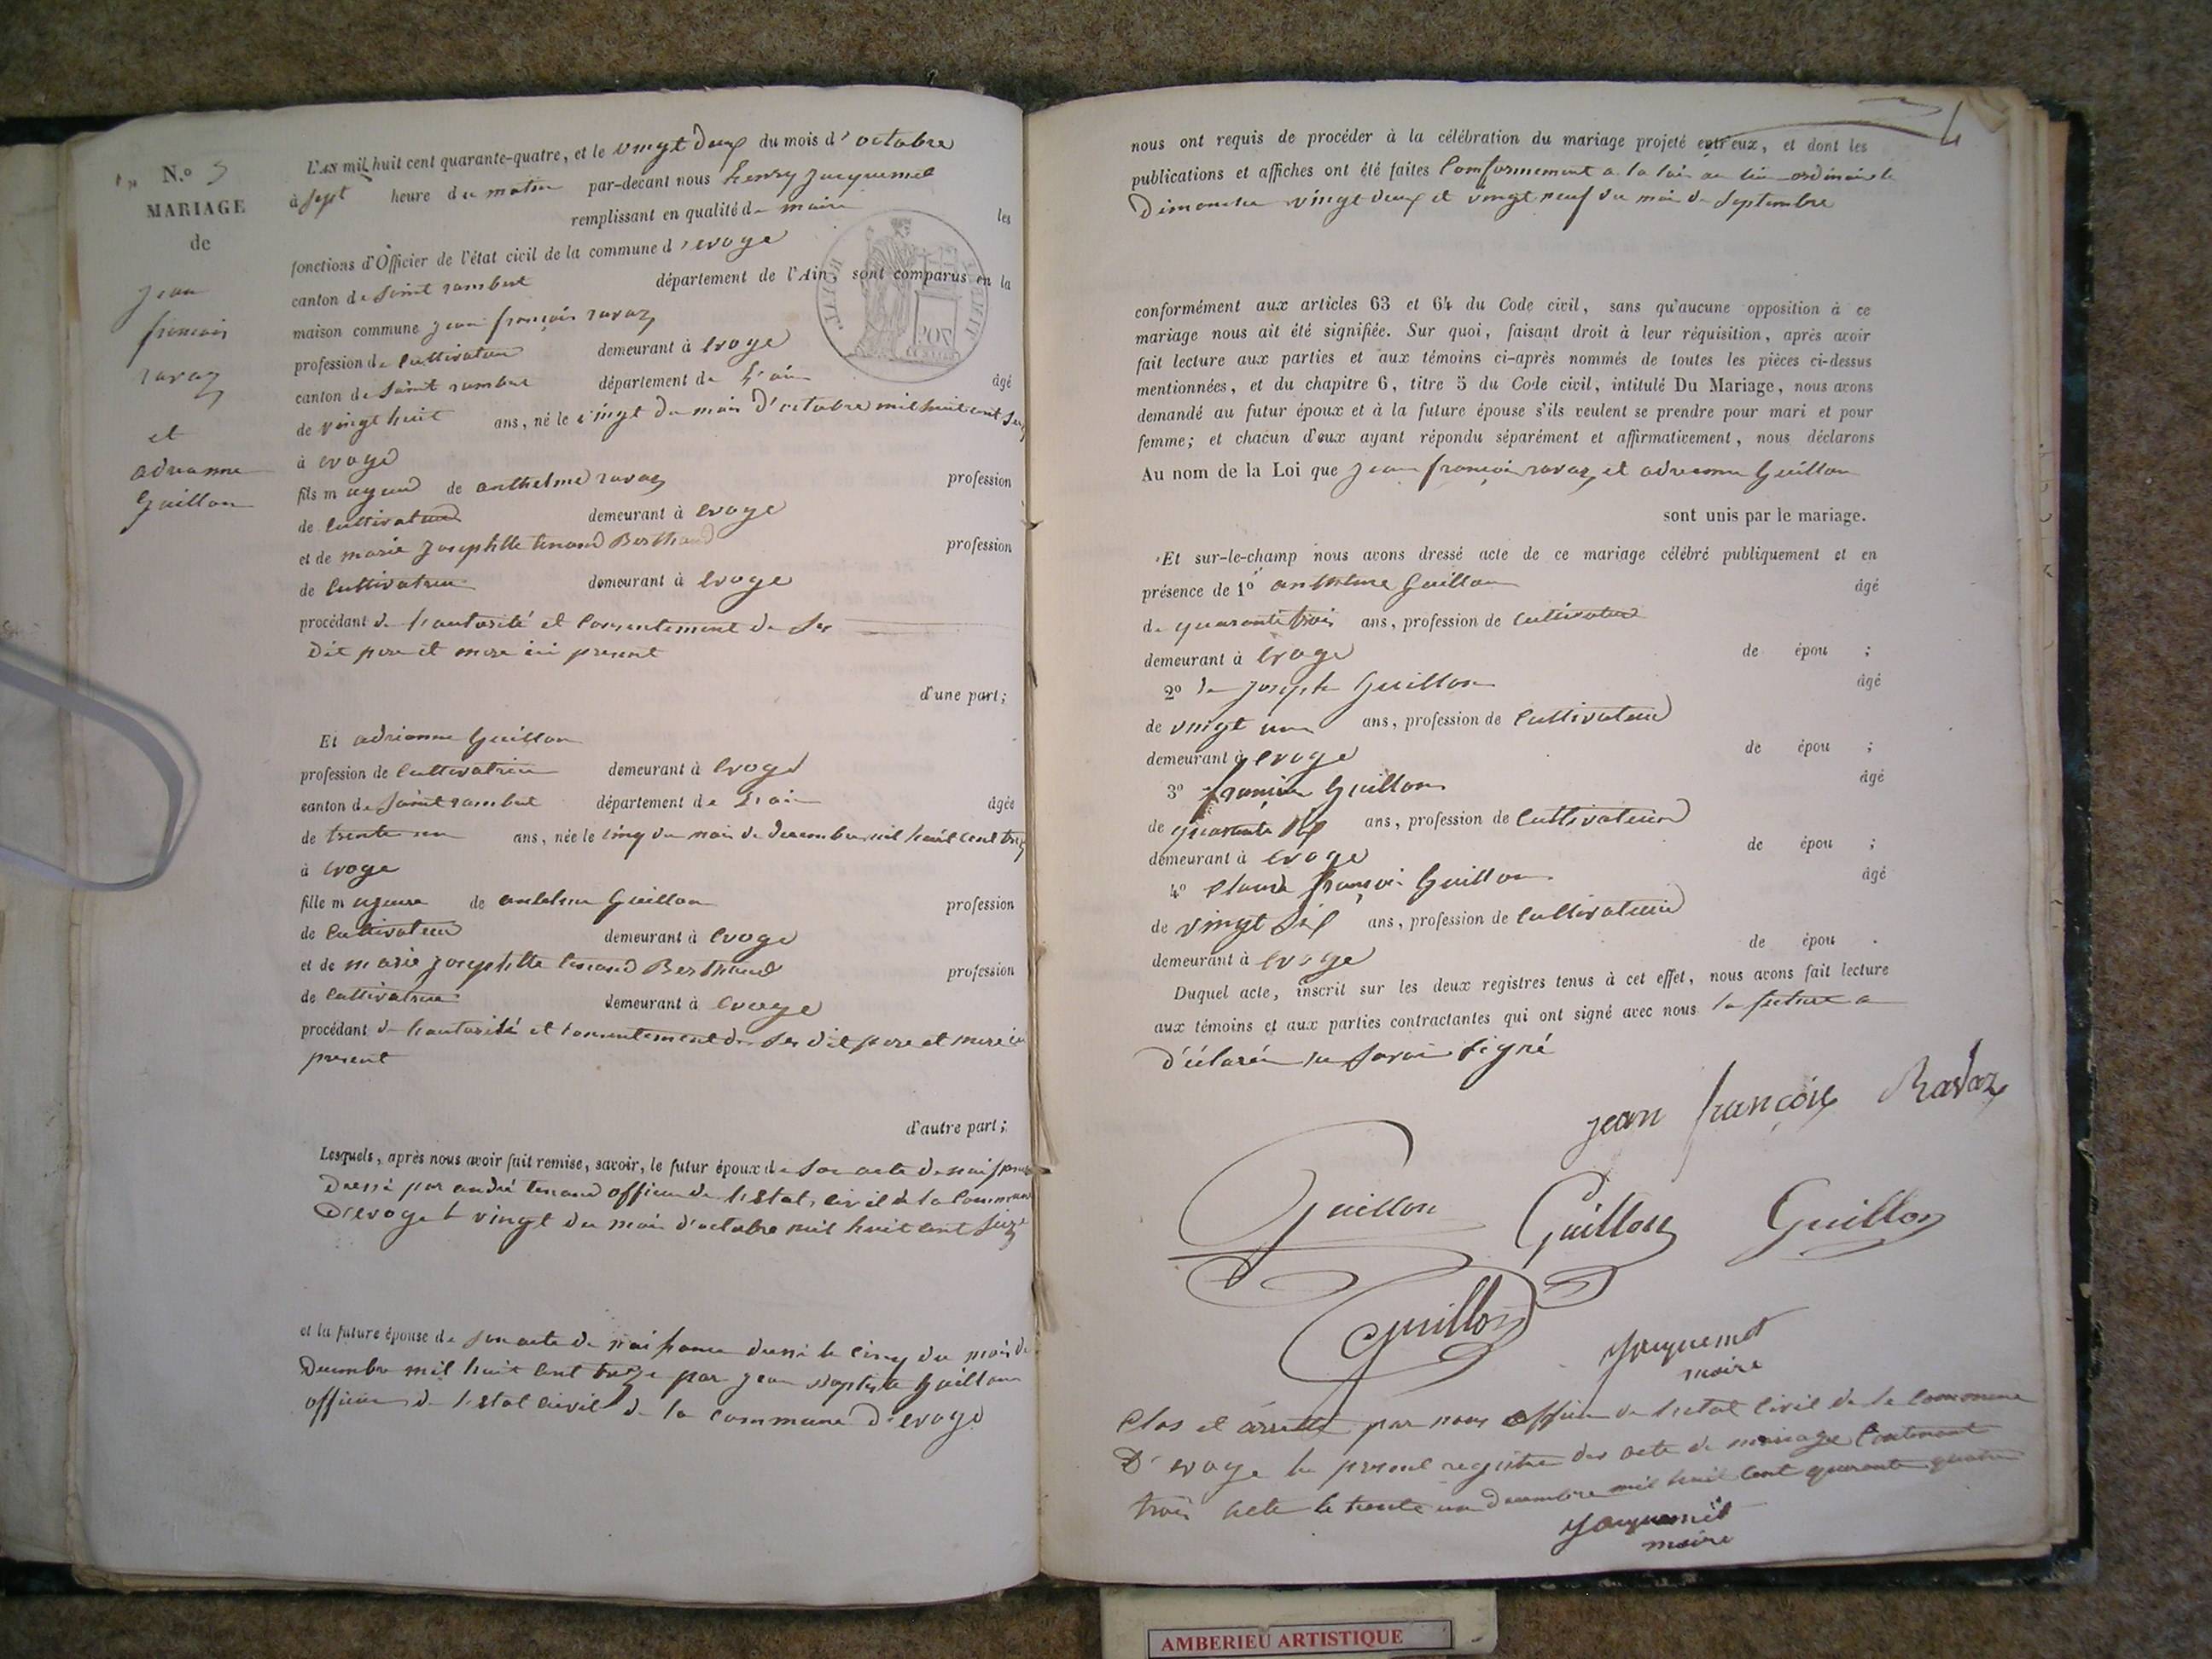 N.o 3
MARIAGE
de
jean
francois
ravaz
et
adrianne
Guillon
L'AN mil huit cent quarante-quatre, et le vingt deux du mois d'octobre
à sept heure du matin par-devant nous henry jacquemet
remplissant en qualité de maire les
fonctions d'Officier de l'état civil de la commune d'evoge
canton de Saint rambert département de l'Ain, sont comparus en la
maison commune jean françois ravaz
profession de Cultivateur demeurant à Evoge
canton de Saint rambert département de L'ain âgé
de vingt huit ans, né le vingt du mois d'octobre mil huit cent seize
à evoge
fils majeur de anthelme ravaz profession
de Cultivateur demeurant à Evoge
et de marie josephtte tenand Berthaud profession
de Cultivatrice demeurant à Evoge
procédant de l'autorité et Consentement de Ses
Dit pere et mere ici present
d'une part;
Et adrianne Guillon
profession de Cultivatrice demeurant à Evoge
canton de Saint rambert département de L'ain âgée
de trente un ans, née le cinq du mois de decembre mil huit Cent treize
à Evoge
fille majeure de antelme Guillon profession
de Cultivateur demeurant à Evoge
et de marie josephtte tenand Berthaud profession
de Cultivatrice demeurant à Evoge
procédant de l'autorité et Consentement de Ses Dit pere et mere ici
present
d'autre part;
Lesquels, après nous avoir fait remise, savoir, le futur époux de Son acte de naissance
Dressé par andré tenand officier de l'Etat civil de la Commune
D'evoge le vingt du mois d'octobre mil huit cent Seize
et la future épouse de Son acte de naissance dressé le cinq du mois de
Decembre mil huit Cent treize par jean Baptiste Guillon
officier de l'Etat Civil de la Commune D'evoge
4
nous ont requis de procéder à la célébration du mariage projeté entr'eux, et dont les
publications et affiches ont été faites Conformement a la loi au lieu ordinaire le
Dimanche vingt deux et vingt neuf du mois de Septembre
conformément aux articles 63 et 64 du Code civil, sans qu'aucune opposition à ce
mariage nous ait été signifiée. Sur quoi, faisant droit à leur réquisition, après avoir
fait lecture aux parties et aux témoins ci-après nommés de toutes les pièces ci-dessus
mentionnées, et du chapitre 6, titre 5 du Code civil, intitulé Du Mariage, nous avons
demandé au futur époux et à la future épouse s'ils veulent se prendre pour mari et pour
femme; et chacun d'eux ayant répondu séparément et affirmativement, nous déclarons
Au nom de la Loi que jean françois ravaz et adrianne Guillon
sont unis par le mariage.
Et sur-le-champ nous avons dressé acte de ce mariage célébré publiquement et en
présence de 1o anthelme Guillon âgé
de quarante trois ans, profession de Cultivateur
demeurant à Evoge de épou ;
2o de joseph Guillon âgé
de vingt un ans, profession de Cultivateur
demeurant à evoge de épou ;
3o françois Guillon âgé
de quarante Six ans, profession de Cultivateur
demeurant à evoge de épou ;
4o Claude françois Guillon âgé
de vingt Six ans, profession de Cultivateur
demeurant à Evoge de épou .
Duquel acte, inscrit sur les deux registres tenus à cet effet, nous avons fait lecture
aux témoins et aux parties contractantes qui ont signé avec nous la future a
déclarée ne Savoir Signé
jean françois Ravaz
Guillon Guillon Guillon
Guillon
Jacquemet
maire
Clos et arretté par nous officier de l'etat Civil de la Commune
D'evoge le present registre des acte de mariage Contenant
trois acte le trente un Decembre mil huit Cent quarante quatre
Jacquemet
maire
AMBERIEU ARTISTIQUE